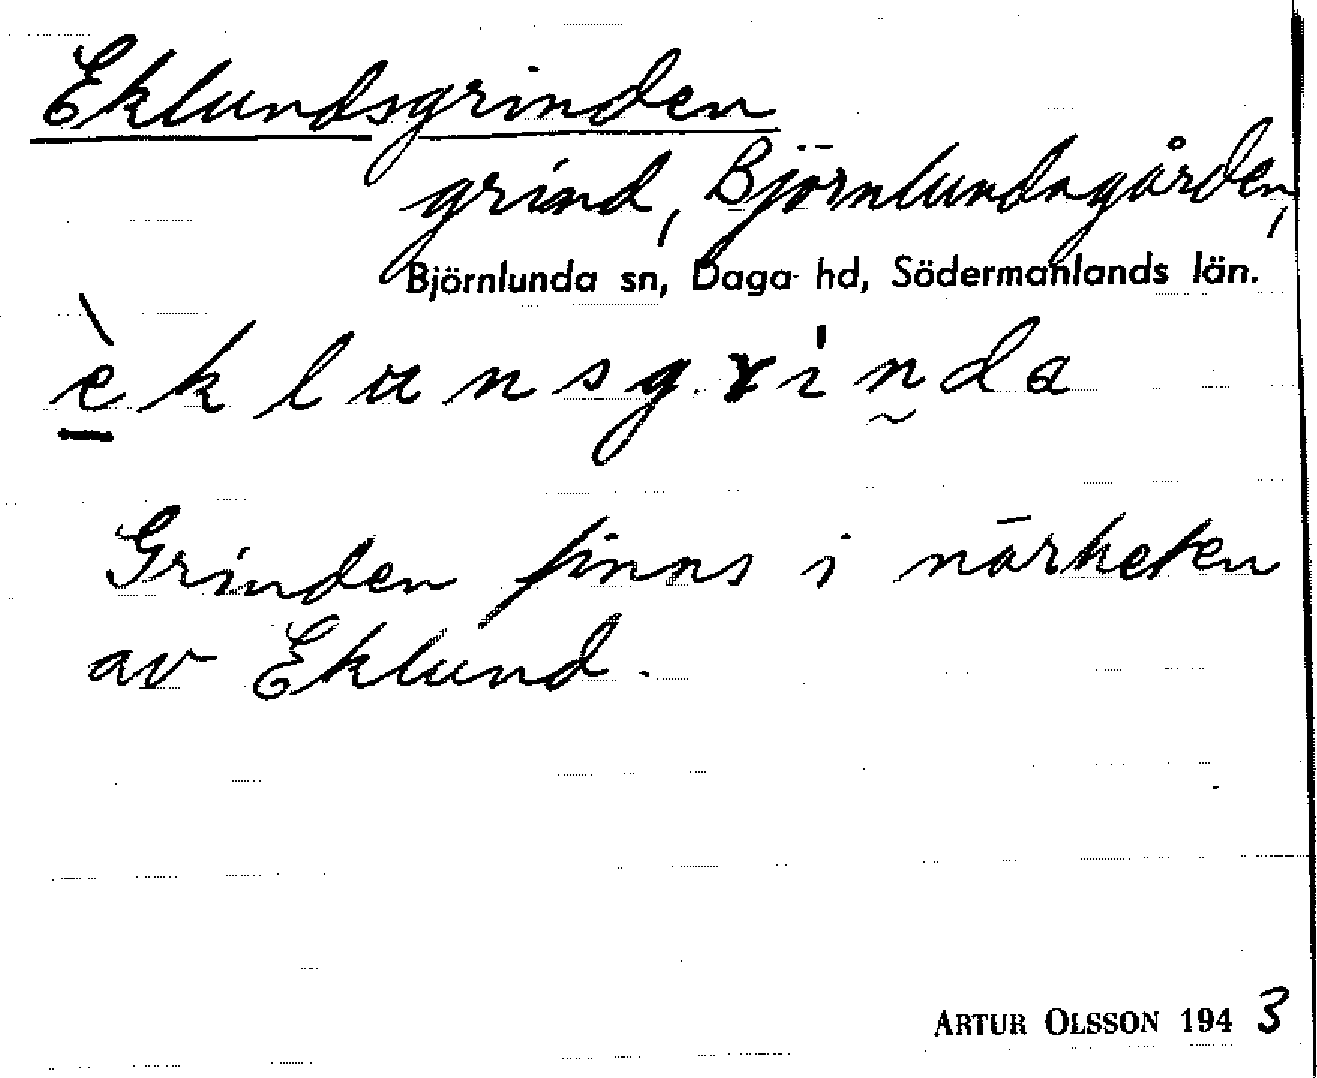 Eklundsgrinden
grind, Björnlundagården,
Björnlunda sn, Daga hd, Södermanlands län.
èklansgrinda
Grinden finns i närheten
av Eklund.
ARTUR OLSSON 1943